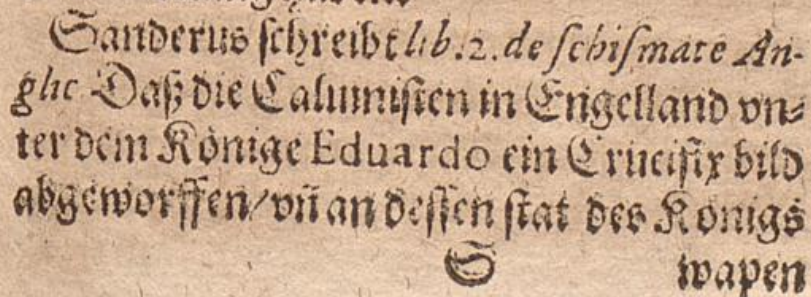 Sanderus schreibt lib. 2. de schismate An-
glic Daß die Caluinisten in Engelland vn⸗
ter dem Könige Eduardo ein Crucifix bild
abgeworffen/ vñ an dessen stat des Königs
S wapen